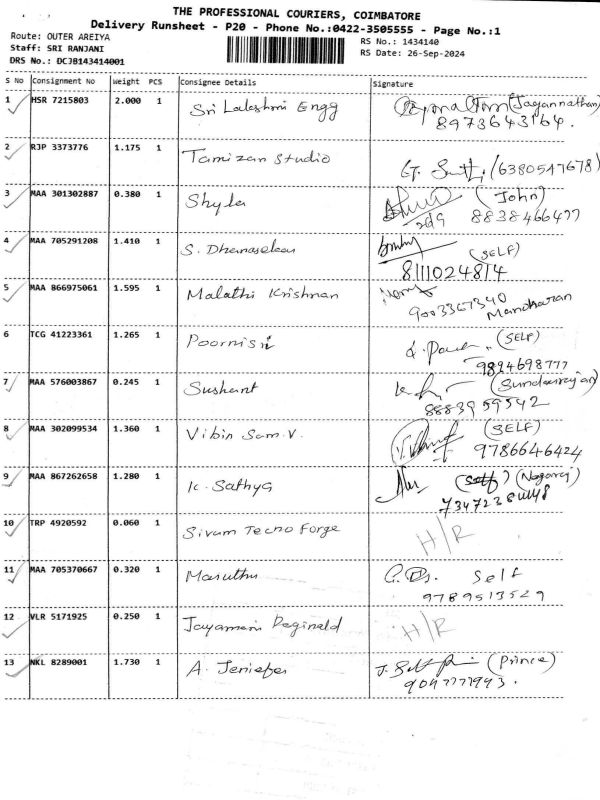 THE PROFESSIONAL COURIERS, COIMBATORE
Delivery Runsheet - P20 - Phone No.:0422-3505555 - Page No.:1
Route: OUTER AREIYA
RS No.: 1434140
Staff: SRI RANJANI
RS Date: 26-Sep-2024
DRS No.: DCJB143414001
S No Consignment No Weight PCS Consignee Details Signature
1 HSR 7215803 2.000 1 Sri Lakshmi Engg (Jagannathan)
8973643164.
2 RJP 3373776 1.175 1 Tamizan Studio
G. (6380547678)
3 MAA 301302887 0.380 1 Shyla (John)
8838466477
4 MAA 705291208 1.410 1 S. Dhanasekar (SELF)
8111024814
5 MAA 866975061 1.595 1 Malathi Krishnan
9003367340
Manoharan
6 TCG 41223361 1.265 1 Poornisri (SELF)
9894698777
7 MAA 576003867 0.245 1 Sushant (Sundarrajan)
8883959542
8 MAA 302099534 1.360 1 Vibin Sam.V. (SELF)
9786646424
9 MAA 867262658 1.280 1 K. Sathya (Nagaraj)
10 TRP 4920592 0.060 1 Sivam Tecno Forge H/R
11 MAA 705370667 0.320 1 Maruthu Self
9789513529
12 VLR 5171925 0.250 1 Jayamani Reginald H/R
13 NKL 8289001 1.730 1 A. Jenifer (Prince)
9047777993.